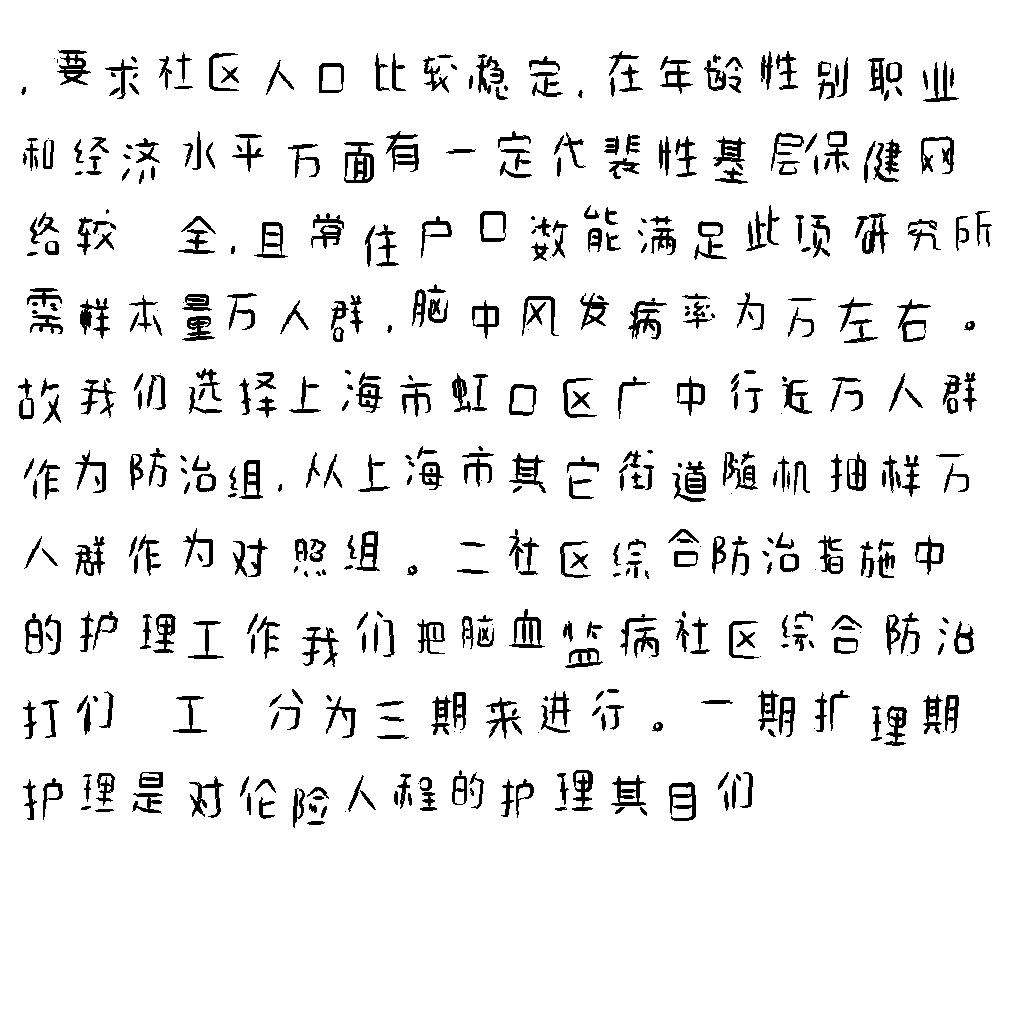 ，要求社区人口比较稳定，在年龄性别职业
和经济水平万面有一定代裴性基层保健网
络较 全，且常住户口数能满足此项研究所
需样本量万人群，脑中风发病率为万左右。
故我们选择上海市虹口区广中行近万人群
作为防治组，从上海市其它街道随机抽样万
人群作为对照组。二社区综合防治指施中
的护理工作我们把脑血监病社区综合防治
打们 工 分为三期来进行。一期扩理期
护理是对伦险人程的护理其目们